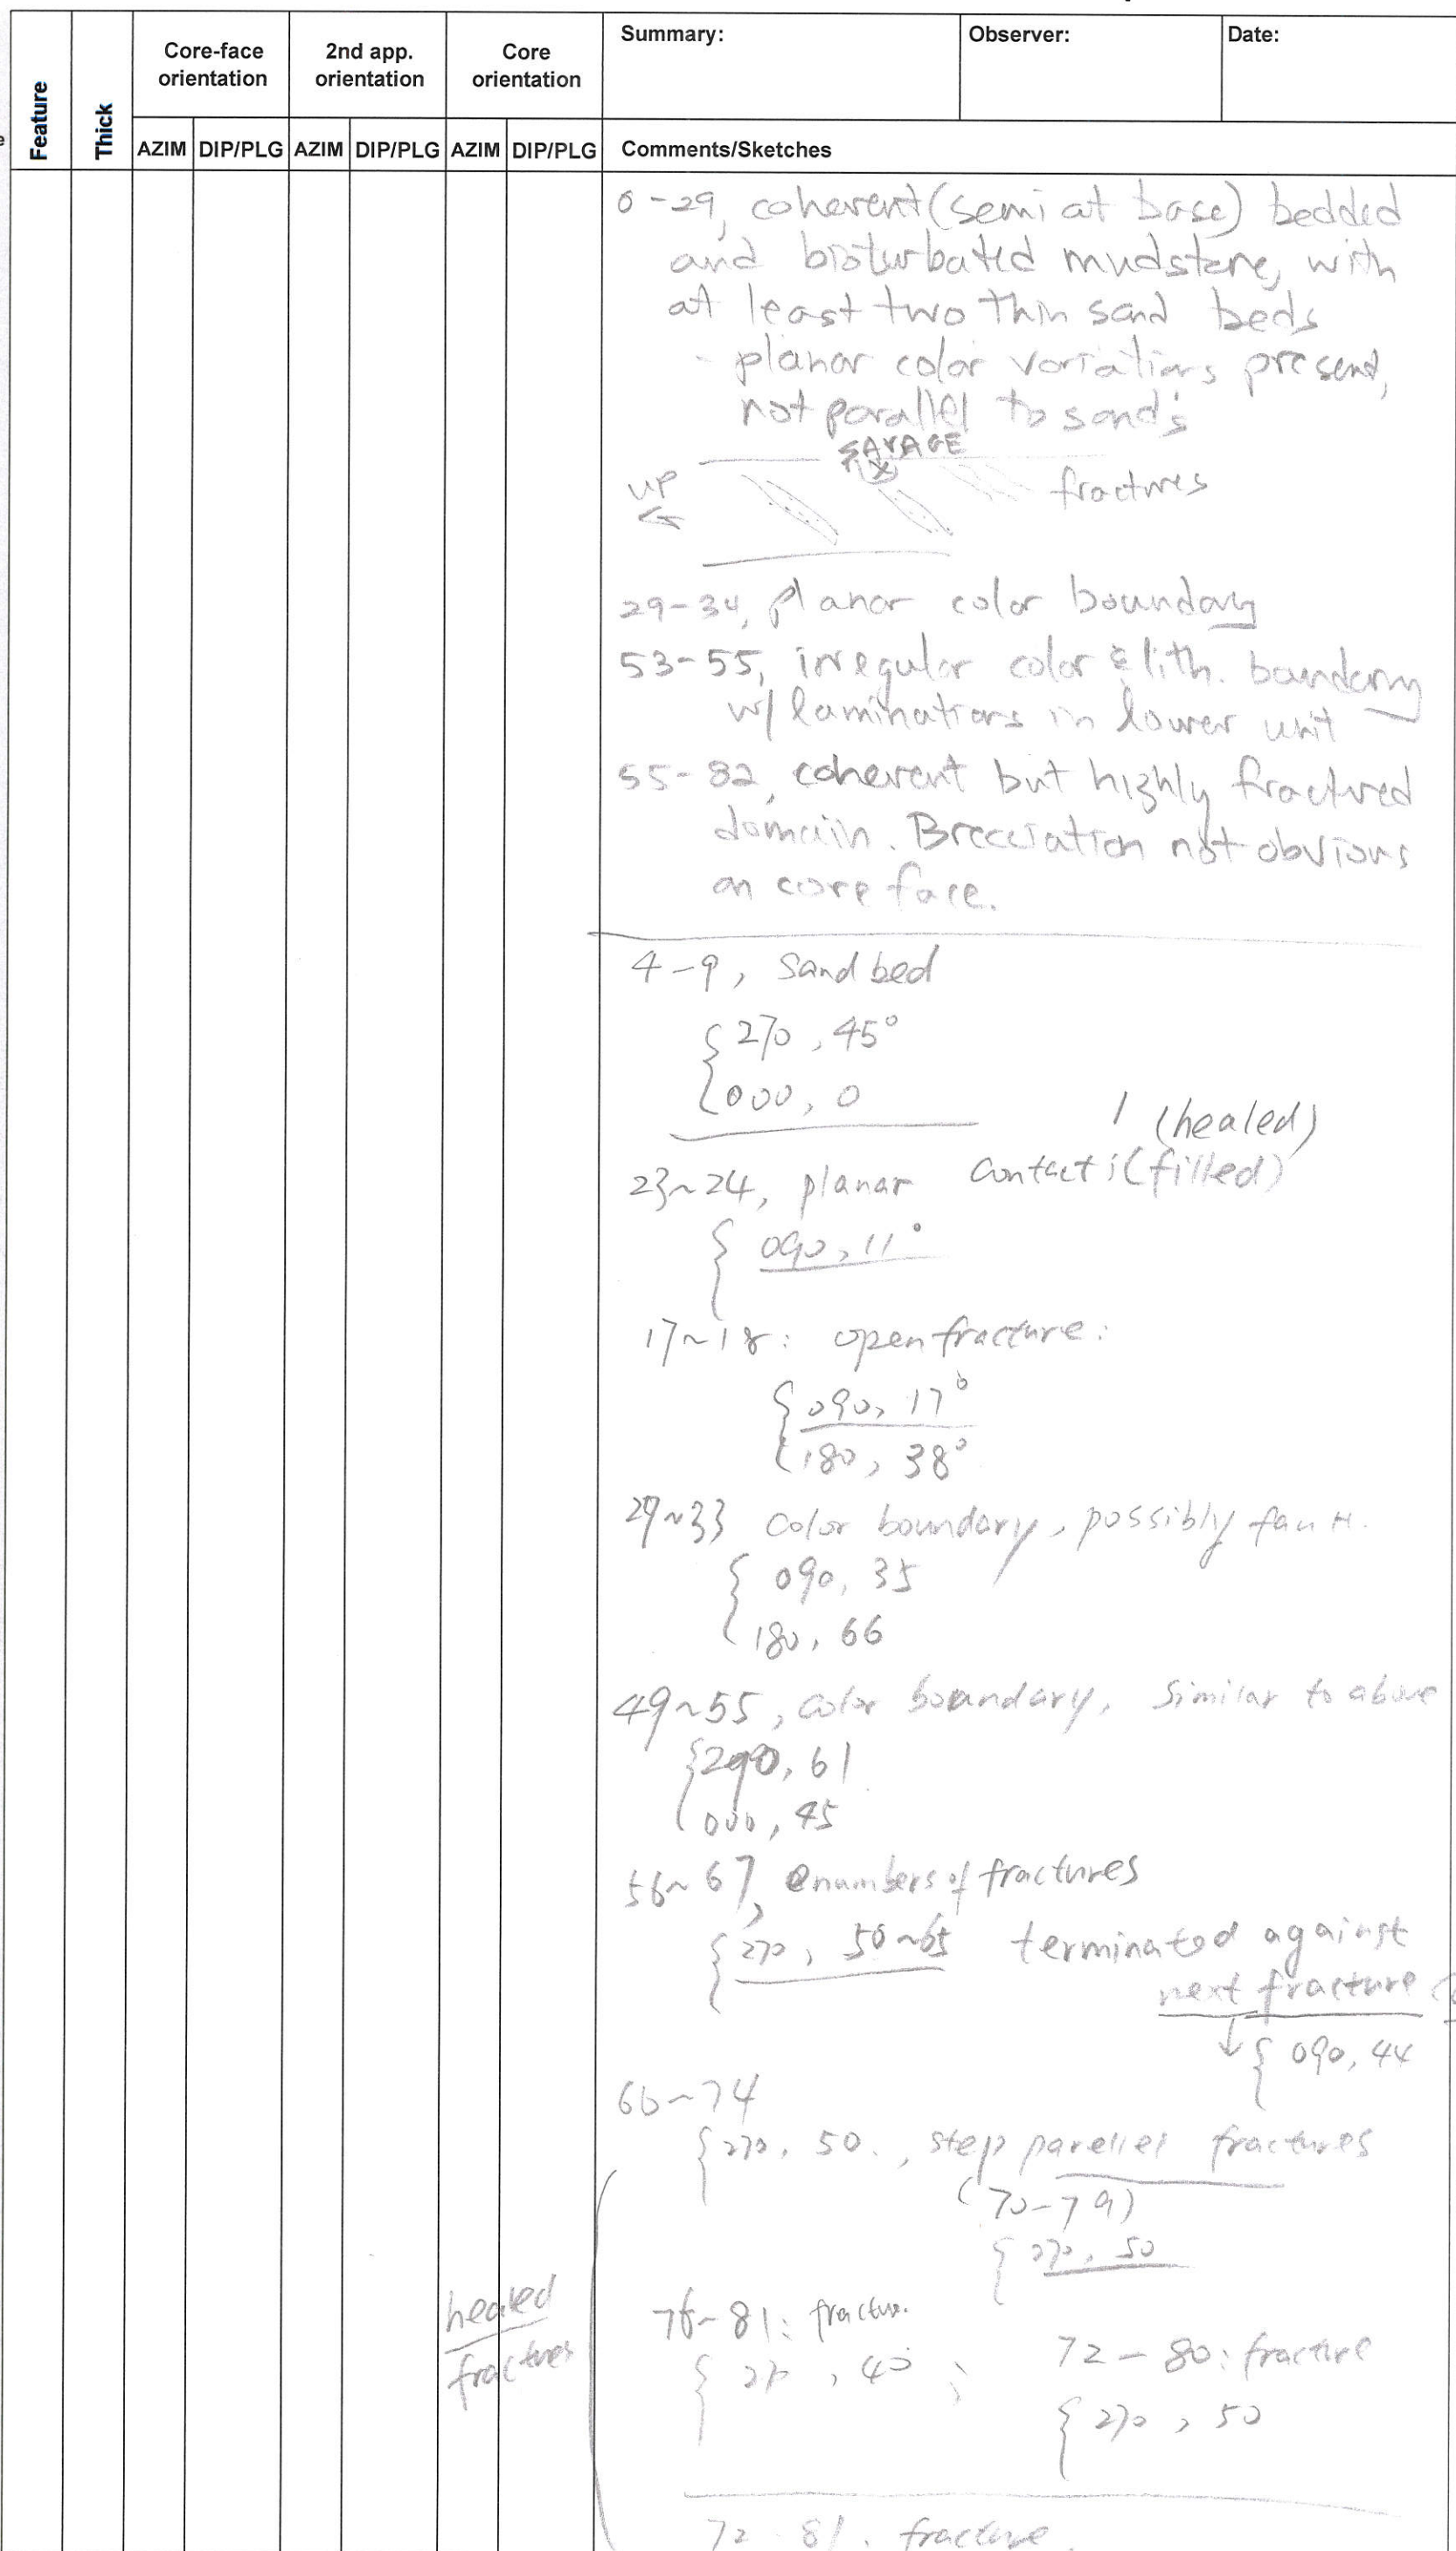 Feature
Thick
Core-face orientation
2nd app. orientation
Core orientation
Summary:
Observer:
Date:
AZIM DIP/PLG AZIM DIP/PLG AZIM DIP/PLG Comments/Sketches
0-29, coherent (semi at base) bedded
and bioturbated mudstone, with
at least two thin sand beds
- planar color variations present,
not parallel to sands
SAVAGE
UP
fractures
29-34, planar color boundary
53-55, irregular color & lith. boundary
w/ laminations in lower unit
55-82, coherent but highly fractured
domain. Brecciation not obvious
on core face.
4-9, Sand bed
270, 45°
000, 0
(healed)
23~24, planar contact; (filled)
090, 11°
17~18: open fracture:
090, 17°
180, 38°
29~33 color boundary, possibly fault.
090, 35
180, 66
49~55, color boundary, similar to above
61
000, 45
56~67, enumbers of fractures
270, 50~65 terminated against
next fracture
090, 44
66~74
270, 50., step parellel fractures
(70-79)
270, 50
healed
fractures
76~81: fracture.
40
72-80: fracture
270, 50
72 81. fracture.